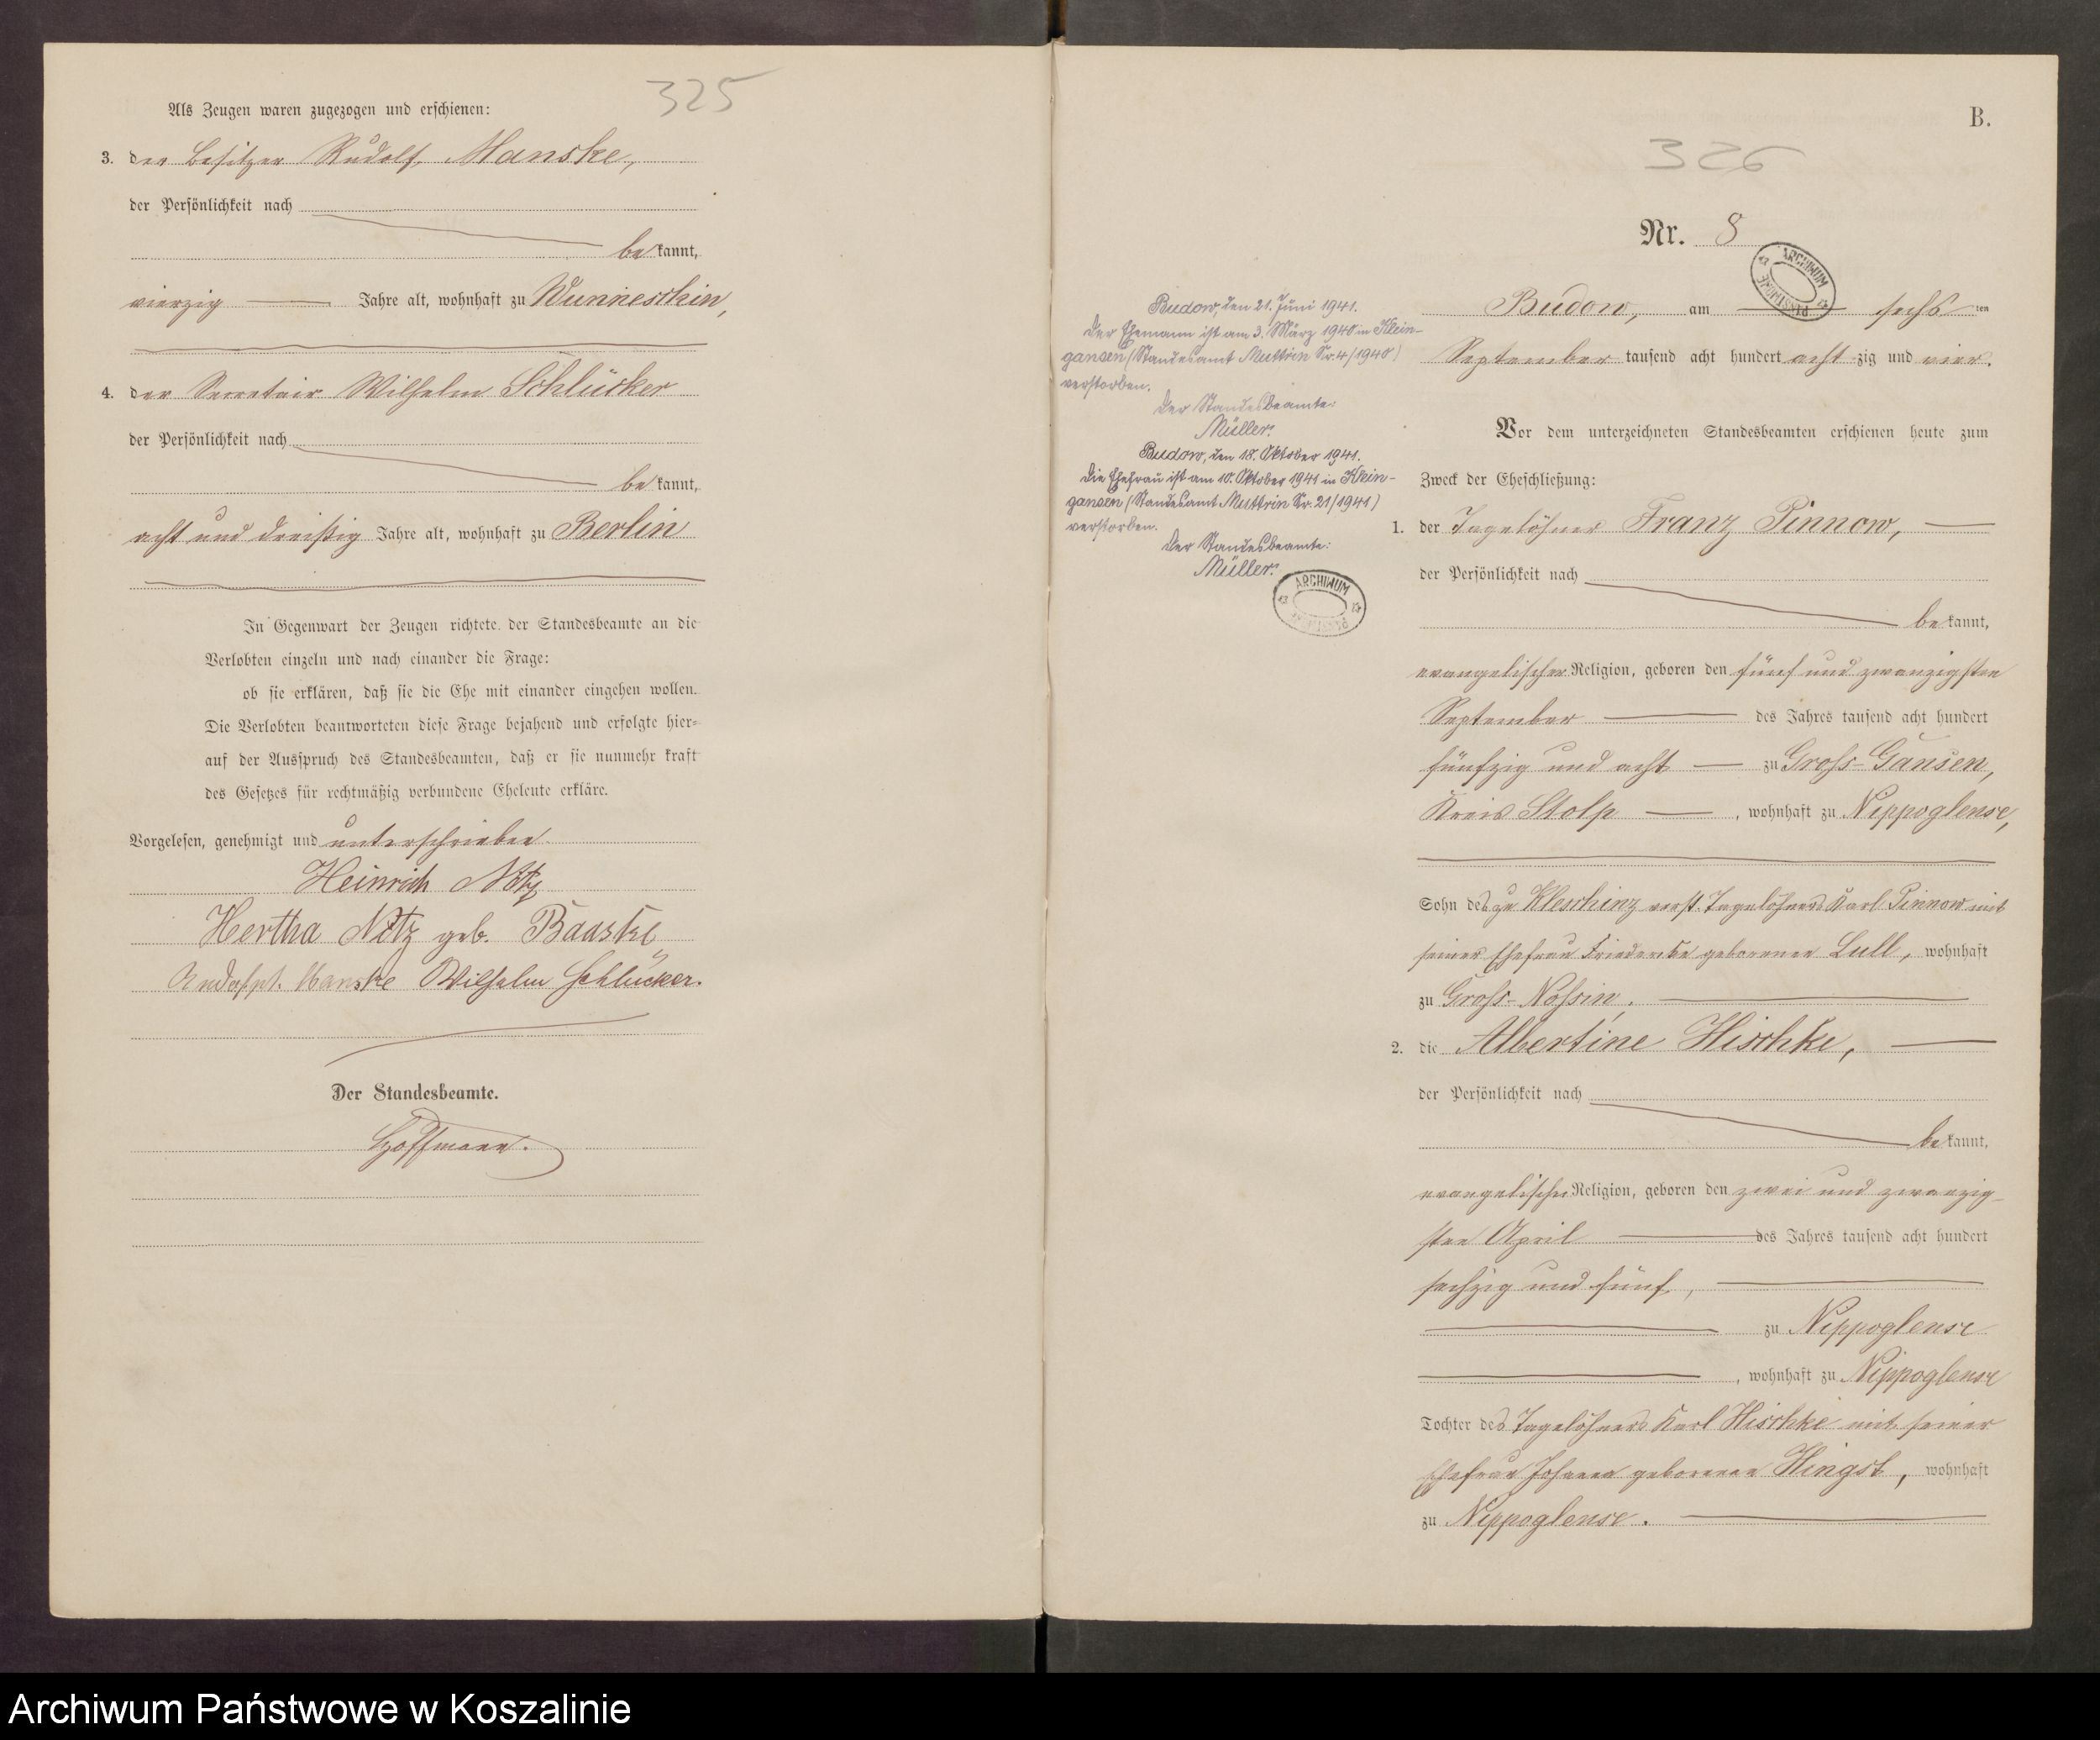 325
Als Zeugen waren zugezogen und erschienen:
3. der Besitzer Rudolf Manske,
der Persönlichkeit nach
bekannt,
vierzig Jahre alt, wohnhaft zu Wunneschin,
4. der Secretair Wilhelm Schlücker
der Persönlichkeit nach
bekannt,
acht und dreißig Jahre alt, wohnhaft zu Berlin
In Gegenwart der Zeugen richtete der Standesbeamte an die
Verlobten einzeln und nach einander die Frage:
ob sie erklären, daß sie die Ehe mit einander eingehen wollen.
Die Verlobten beantworteten diese Frage bejahend und erfolgte hier=
auf der Ausspruch des Standesbeamten, daß er sie nunmehr kraft
des Gesetzes für rechtmäßig verbundene Eheleute erkläre.
Vorgelesen, genehmigt und unterschrieben
Heinrich Nötz
Hertha Nötz geb. Baaske
Manske Wilhelm Schlücker.
Der Standesbeamte.
Hoffmann.
B.
326
Nr. 8
ARCHIWUM
Budow, am sechsten
September tausend acht hundert achtzig und vier.
Vor dem unterzeichneten Standesbeamten erschienen heute zum
Zweck der Eheschließung:
1. der Tagelöhner Franz Pinnow,
der Persönlichkeit nach
bekannt,
evangelischer Religion, geboren den fünf und zwanzigsten
September des Jahres tausend acht hundert
fünfzig und acht zu Gross-Gansen,
Kreis Stolp, wohnhaft zu Nippoglense,
Sohn des zu Kleschinz verst. Tagelöhners Karl Pinnow mit
seiner Ehefrau Friederike geborenen Lull, wohnhaft
zu Gross-Nossin.
2. die Albertine Hischke,
der Persönlichkeit nach
bekannt,
evangelischer Religion, geboren den zwei und zwanzig-
sten April des Jahres tausend acht hundert
sechzig und fünf,
zu Nippoglense
, wohnhaft zu Nippoglense
Tochter des Tagelöhners Karl Hischke mit seiner
Ehefrau geborenen Hingst, wohnhaft
zu Nippoglense.
Budow, den 21. Juni 1941.
Der Ehemann ist am 3. März 1940 in Klein-
gansen (Standesamt Muttrin Nr. 4/1940)
verstorben.
Der Standesbeamte:
Müller.
Budow, den 18. Oktober 1941.
Die Ehefrau ist am 10. Oktober 1941 in Klein-
gansen (Standesamt Muttrin Nr. 21/1941)
verstorben.
Der Standesbeamte:
Müller.
ARCHIWUM
Archiwum Państwowe w Koszalinie